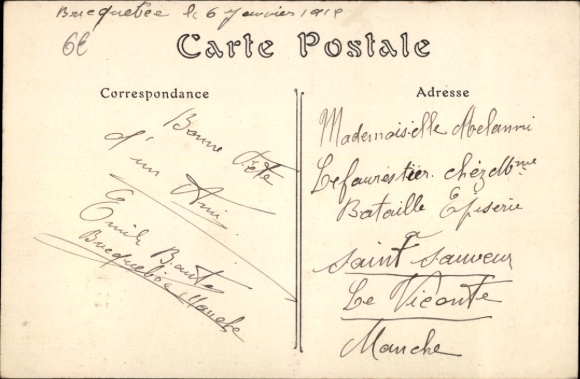 Bricquebec le 6 Janvier 1919
6E
Carte Postale
Correspondance
Bonne Fête
d'un Ami
Emile
Bricquebec Manche
Adresse
Mademoiselle Melanni
Lefaurestier. chez Mme
Bataille Episerie
a
Saint Sauveur
Le Viconte
Manche